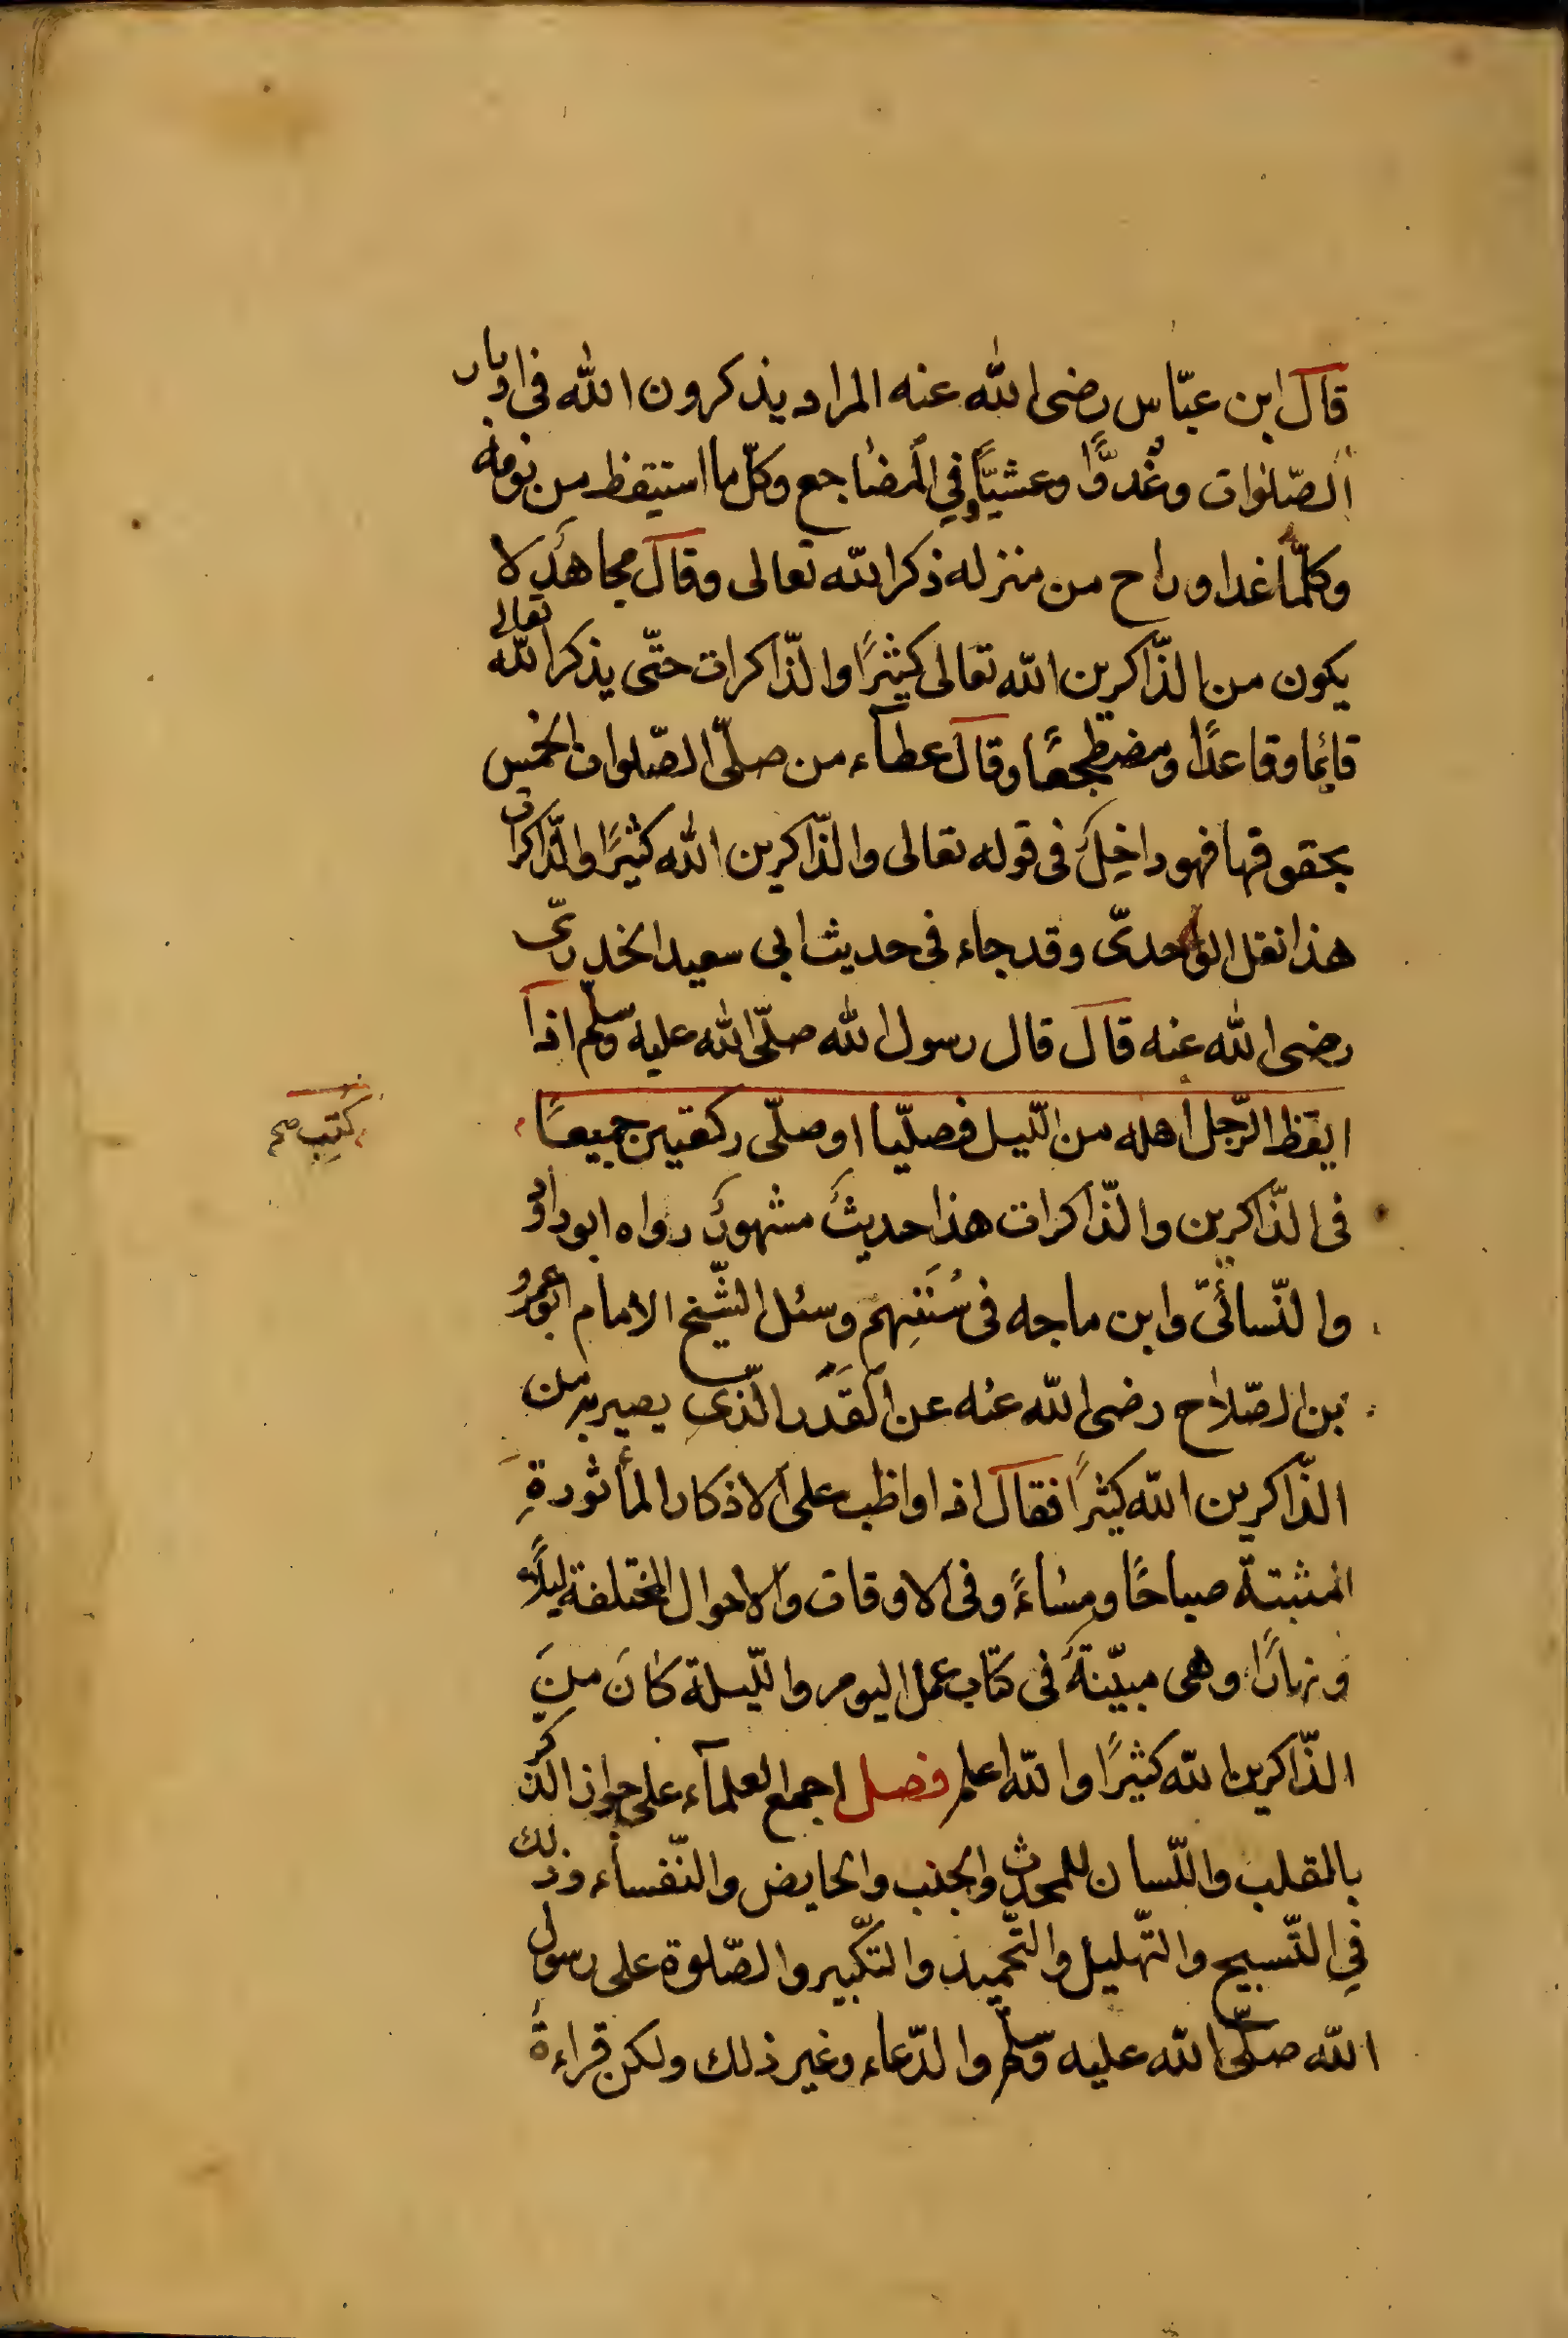 قال ابن عبّاس رضى الله عنه المراد يذكرون الله فى ادبار
الصّلوات وغُدوًّا وعشيًّا وفِي المضاجع وكلّ ما استيقظ من نومه
وكلّما غدا وراح من منزله ذكر الله تعالى وقال مجاهدٌ لا
يكون من الذّاكرين الله تعالى كثيرًا والذّاكرات حتّى يذكر الله تعالى
قائما وقاعدًا ومضطجعًا وقال عطآء من صلّى الصّلوات الخمس
بحقوقها فهو داخِلٌ فى قوله تعالى والذّاكرين الله كثيرًا والذّاكرات
هذا نقل الواحدىّ وقد جاء فى حديث ابى سعيد الخدرىّ
رضى الله عنه قال قال رسول الله صلّى الله عليه وسلّم اذا
ايقظ الرّجل اهله من اللّيل فصلّيا او صلّى ركعتين جميعًا
كُتِب صح
فى الذّاكرين والذّاكرات هذا حديثٌ مشهورٌ رواه ابو داود
والنّسائىّ وابن ماجه فى سُنَنِهم وسئل الشّيخ الامام ابو عمرو
بن الصّلاح رضى الله عنه عن القَدَر الّذى يصير به من
الذّاكرين الله كثيرًا فقال اذا واظب على الاذكار المأثورةِ
المثبتة صباحًا ومساءً وفى الاوقات والاحوال المختلفة ليلًا
ونهارًا وهى مبيّنةٌ فى كتاب عمل اليوم واللّيلة كانَ مِنَ
الذّاكرين الله كثيرًا والله اعلم فصل اجمع العلمآء على جواز الذّكر
بالمقلب واللّسان للمحدث والجنب والحايض والنّفساء وذلك
فِى التّسبيح والتّهليل والتّحميد والتّكبير والصّلوة على رسول
الله صلّى الله عليه وسلّم والدّعاء وغير ذلك ولكن قراءةُ